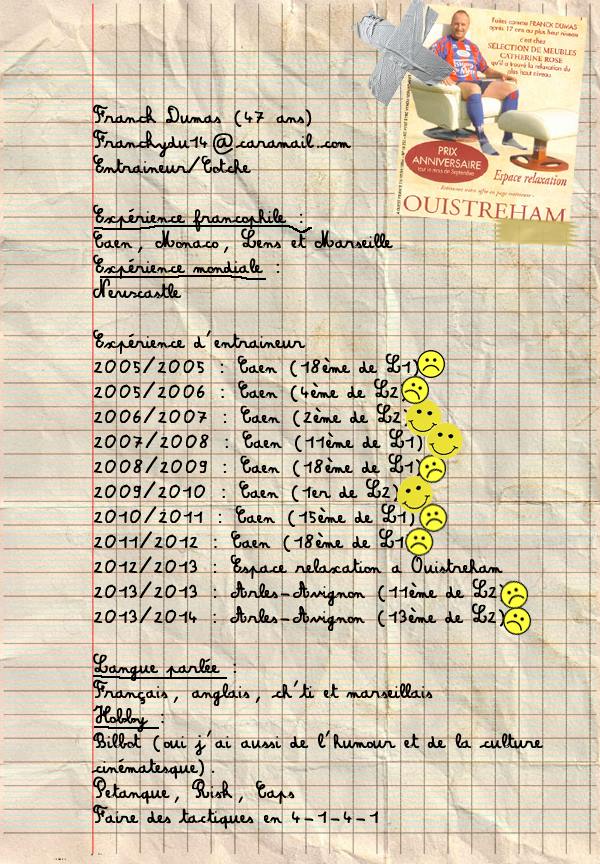 Faites comme FRANCK DUMAS
après 17 ans au plus haut niveau
c'est chez
SÉLECTION DE MEUBLES
CATHERINE ROSE
qu'il a trouvé la relaxation du
plus haut niveau
PRIX
ANNIVERSAIRE
tout le mois de Septembre
Espace relaxation
OUISTREHAM
Franck Dumas (47 ans)
Franchydu14@caramail..com
Entraineur/Cotche
Expérience francophile :
Caen, Monaco, Lens et Marseille
Expérience mondiale :
Newscastle
Expérience d'entraineur
2005/2005 : Caen (18ème de L1)
2005/2006 : Caen (4ème de L2)
2006/2007 : Caen (2ème de L2)
2007/2008 : Caen (11ème de L1)
2008/2009 : Caen (18ème de L1)
2009/2010 : Caen (1er de L2)
2010/2011 : Caen (15ème de L1)
2011/2012 : Caen (18ème de L1
2012/2013 : Espace relaxation a Ouistreham
2013/2013 : Arles-Avignon (11ème de L2)
2013/2014 : Arles-Avignon (13ème de L2)
Langue parlée :
Français, anglais, ch'ti et marseillais
Hobby :
Bilbot (oui j'ai aussi de l'humour et de la culture
cinématesque).
Petanque, Risk, Caps
Faire des tactiques en 4-1-4-1